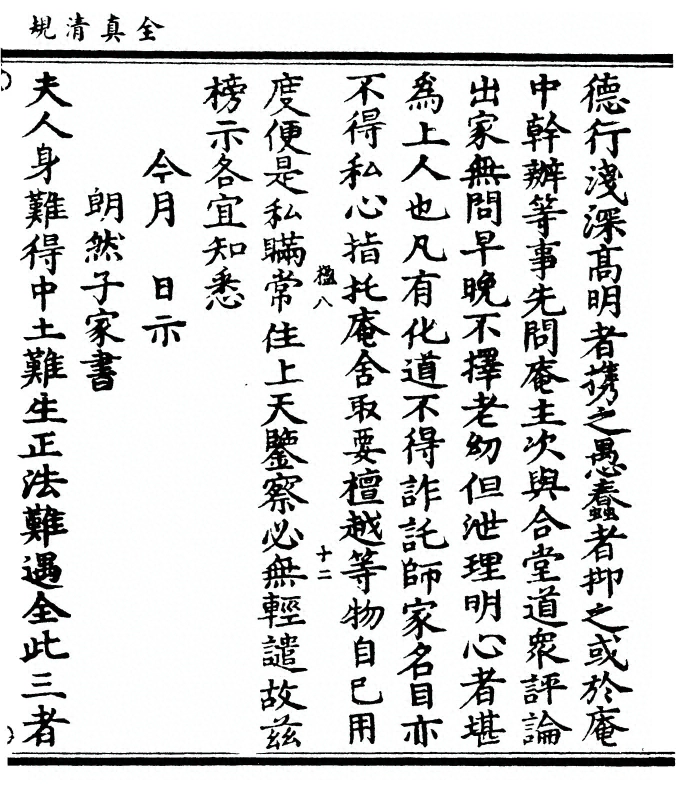 全真清規
德行淺深高明者携之愚蠢者抑之或於庵
中幹辦等事先問庵主次與合堂道衆評論
出家無問早晚不擇老幼但泄理明心者堪
為上人也凡有化道不得詐託師家名目亦
不得私心指托庵舍取要檀越等物自己用
楹八
十二
度便是私瞞常住上天鑒察必無輕譴故兹
榜示各宜知悉
今月　日示
朗然子家書
夫人身難得中土難生正法難遇全此三者